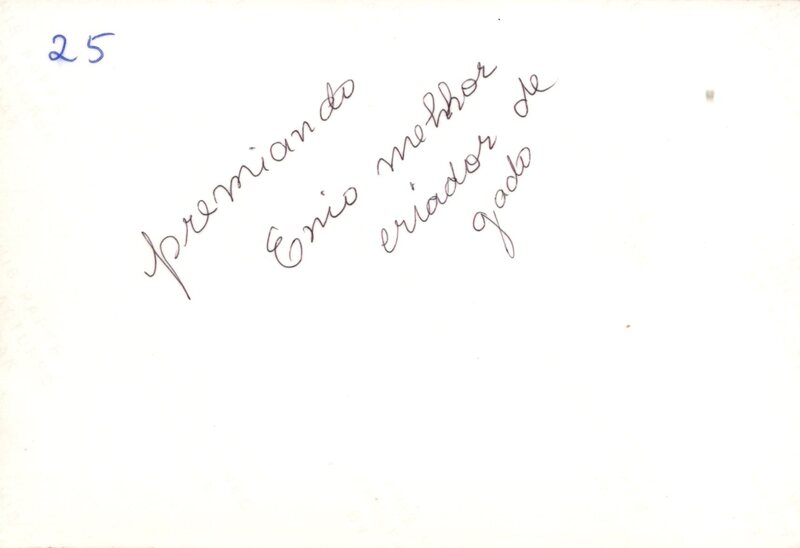 25
premiando
Enio melhor
criador de
gado